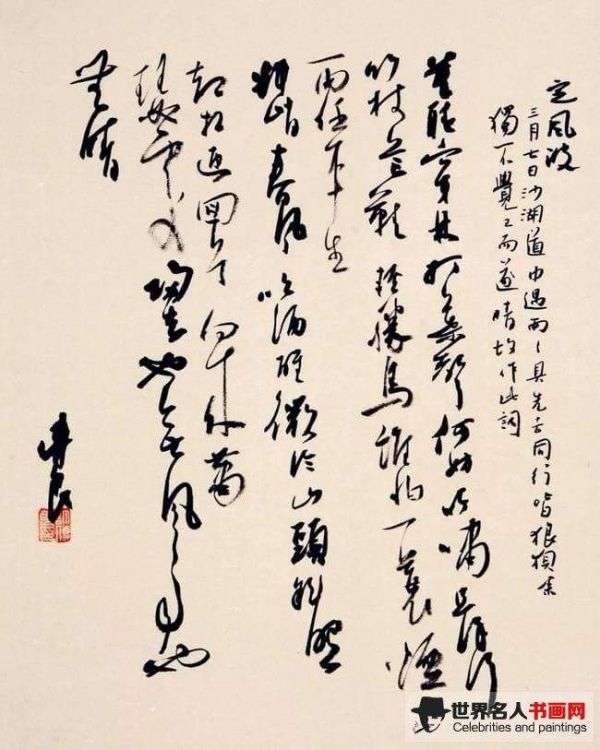 定風波
三月七日沙湖道中遇雨〻具先去同行皆狼狽余
獨不覺已而遂晴故作此詞
莫聽穿林打葉聲何妨吟嘯且徐行
竹杖芒鞋輕勝馬誰怕一蓑煙
雨任平生
料峭春風吹酒醒微冷山頭斜照
却相迎回首向來蕭
瑟處歸去也無風雨也
無晴
世界名人书画网
Celebrities and paintings